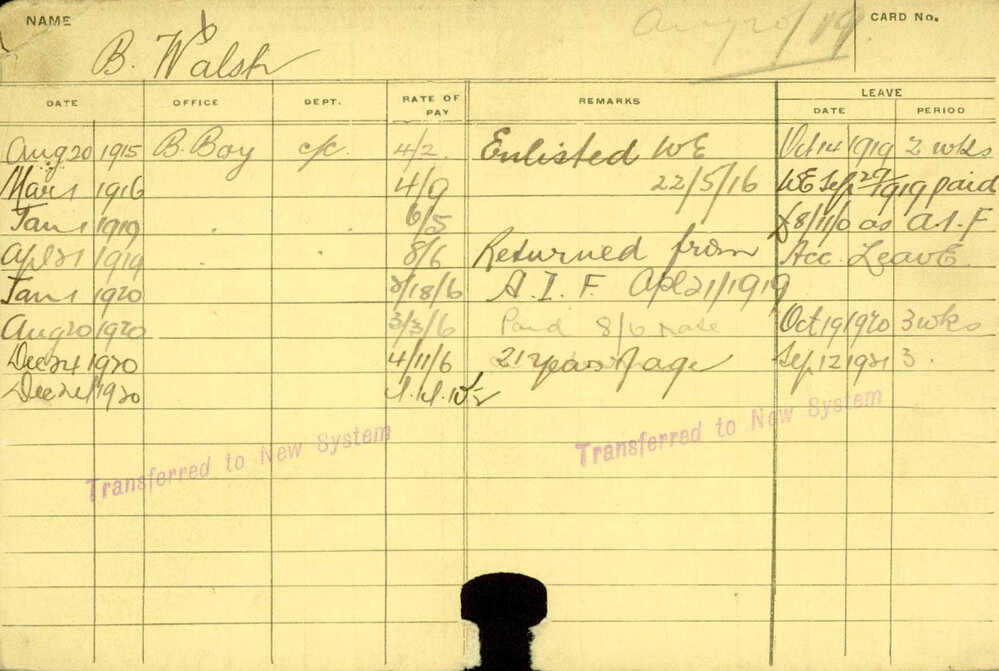 NAME
B. Walsh
Aug 20/19.
CARD No.
DATE OFFICE DEPT. RATE OF PAY REMARKS LEAVE
DATE PERIOD
Aug 20 1915 B. Boy c/c. 4/2. Enlisted WE Oct 14 1919 2 wks
Mar 1 1916 4/9 22/5/16 WE Sep 27/1919 paid
Jan 1 1919 6/5 £8/11/0 as A.I.F
Apl 21 1919 8/6 Returned from Acc. Leave
Jan 1 1920 2/18/6 A.I.F. Apl 21/1919
Aug 20 1920 3/3/6 Paid 8/6 rate Oct 19 1920 3 wks
Dec 24 1920 4/11/6 21 years of age Sep 12 1921 3.
Dec 24/1920
Transferred to New System
Transferred to New System